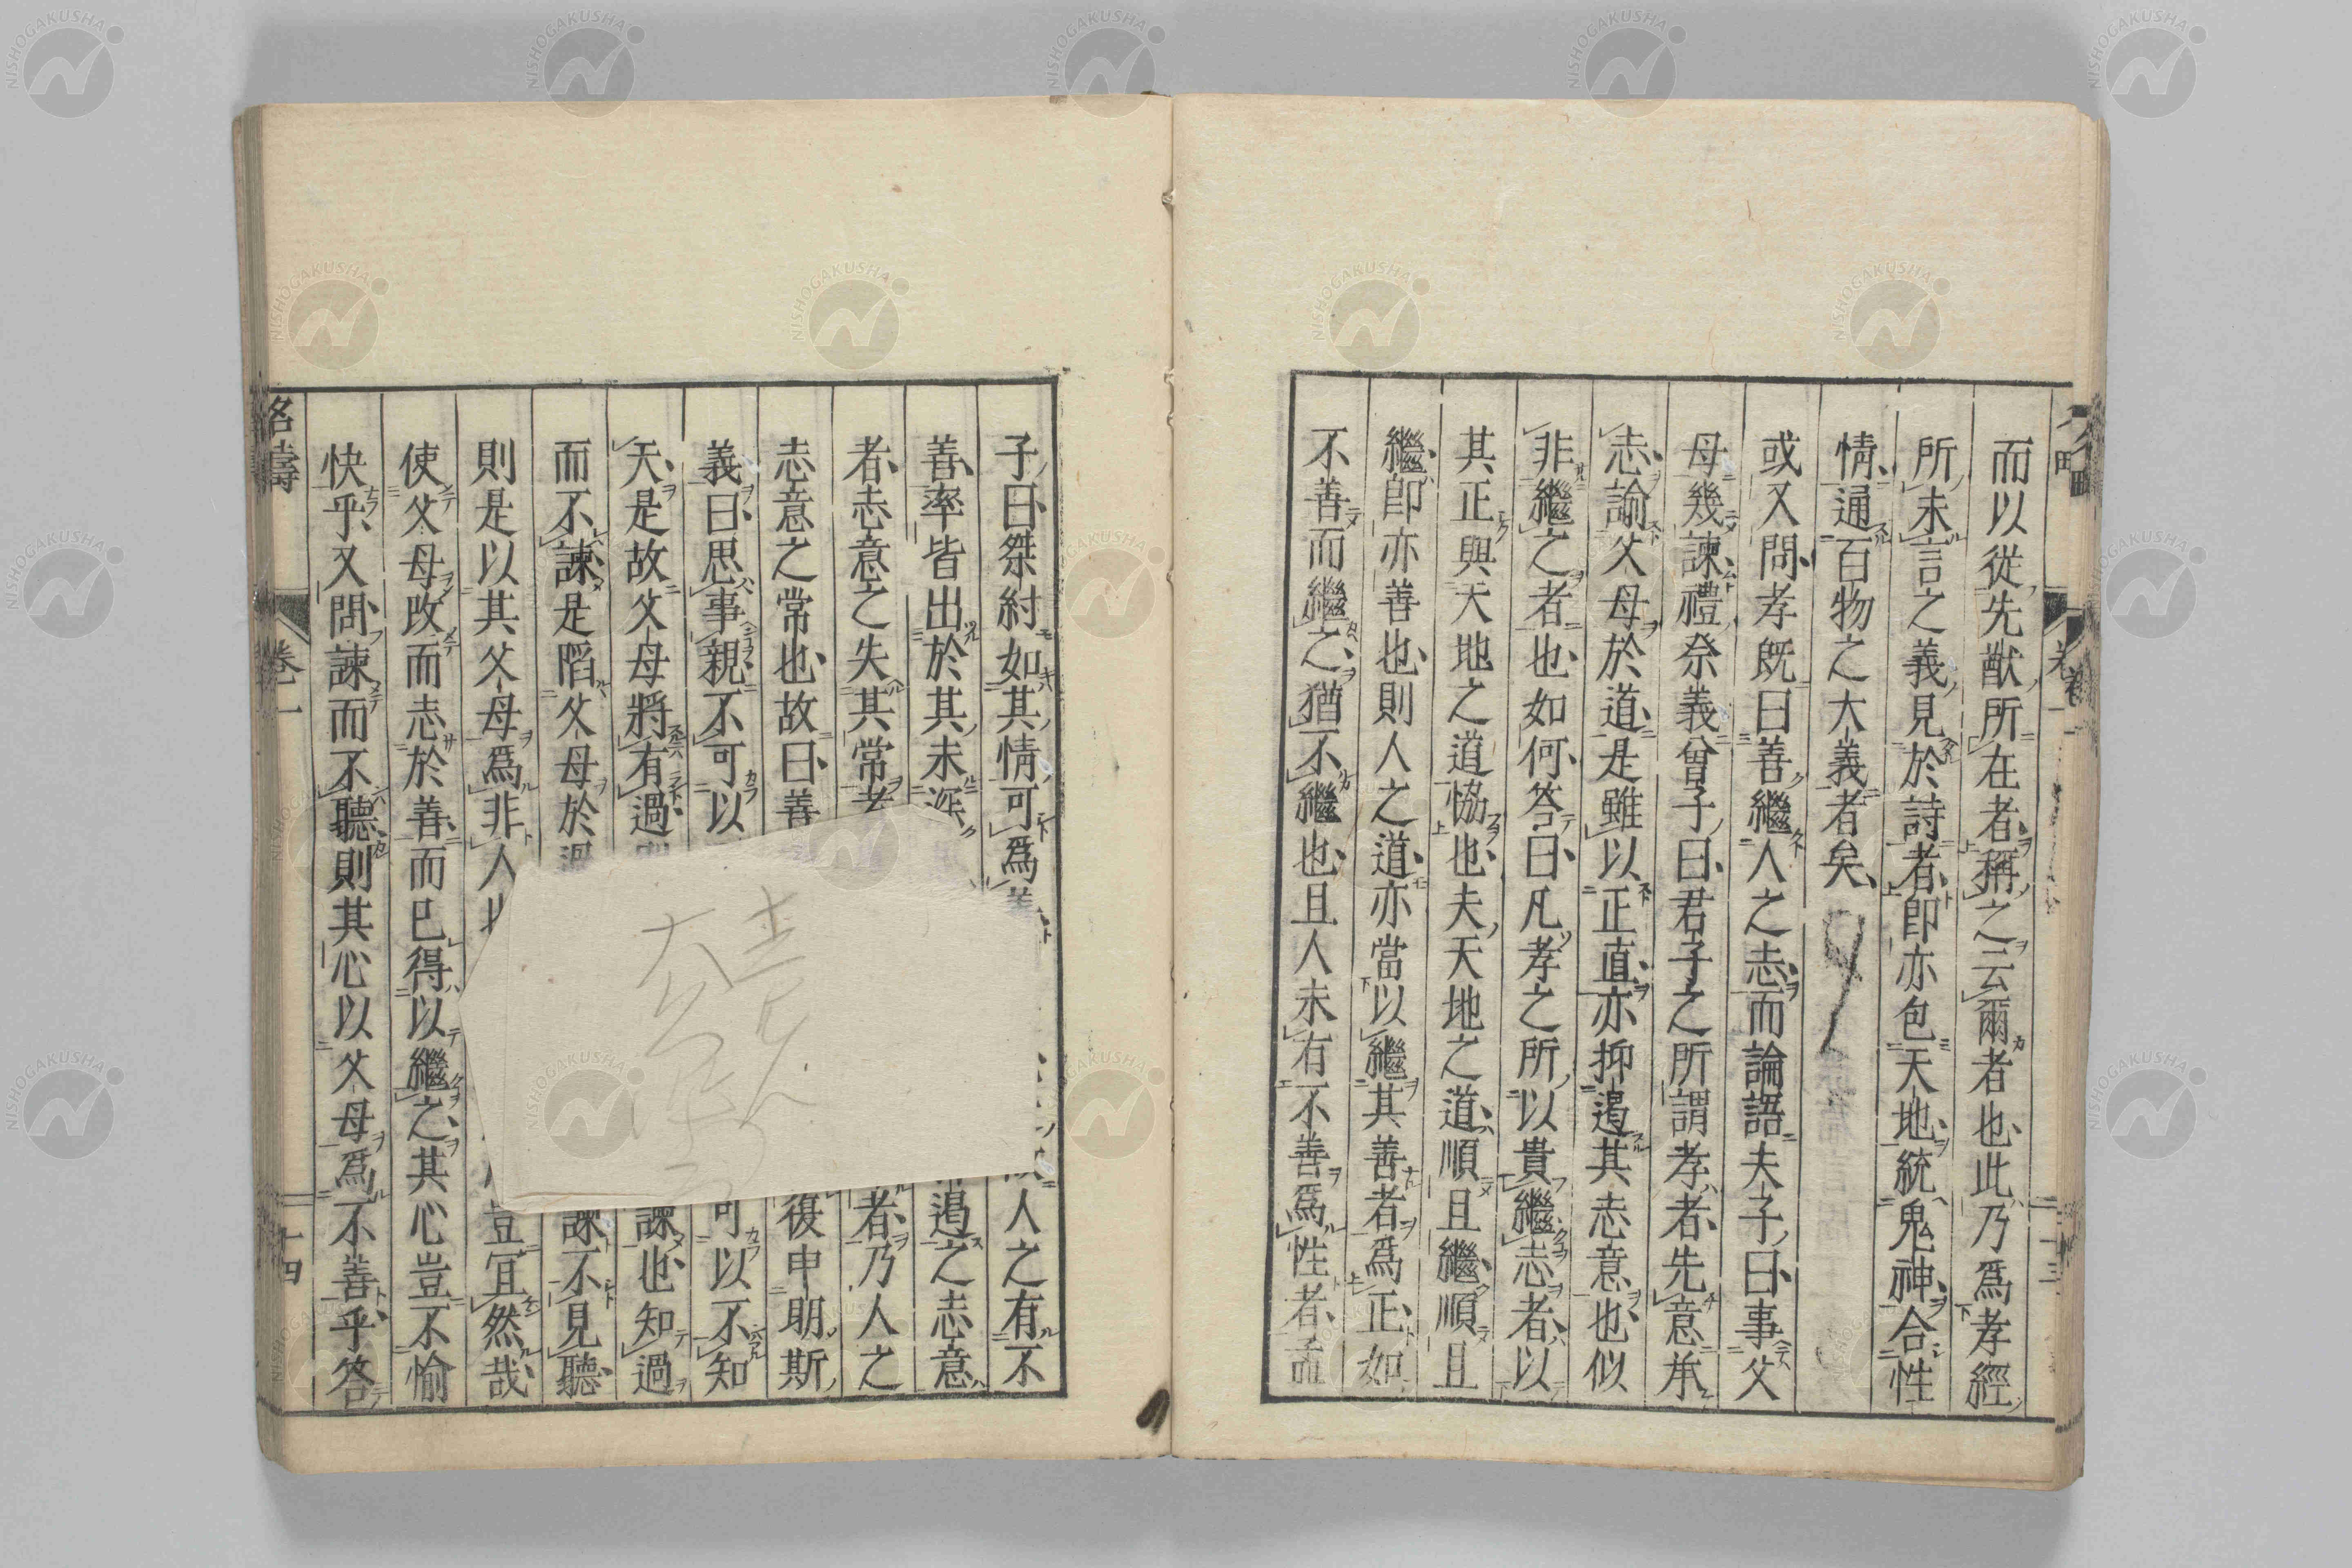 而以從先猷所在者稱之云爾者也此乃爲孝經
所未言之義見於詩者即亦包天地統鬼神合性
情通百物之大義者矣
或又問孝既曰善繼人之志而論語夫子曰事父
母幾諫禮祭義曾子曰君子之所謂孝者先意承
志諭父母於道是雖以正直亦抑遏其志意也似
非繼之者也如何答曰凡孝之所以貴繼志者以
其正與天地之道恊也夫天地之道順且繼順且
繼即亦善也則人之道亦當以繼其善者爲正如
不善而繼之猶不繼也且人未有不善爲性者孟
子曰桀紂如其情可爲善
人之有不
善率皆出於其未深
遏之志意
者志意之失其常者
者乃人之
志意之常也故曰善
復申明斯
義曰思事親不可以
可以不知
天是故父母將有過
諫也知過
而不諫是陷父母於過
諫不見聽
則是以其父母爲非人也
豈宜然哉
使父母改而志於善而已得以繼之其心豈不愉
快乎又問諫而不聽則其心以父母爲不善乎答
卷一
十四
NISHOGAKUSHA